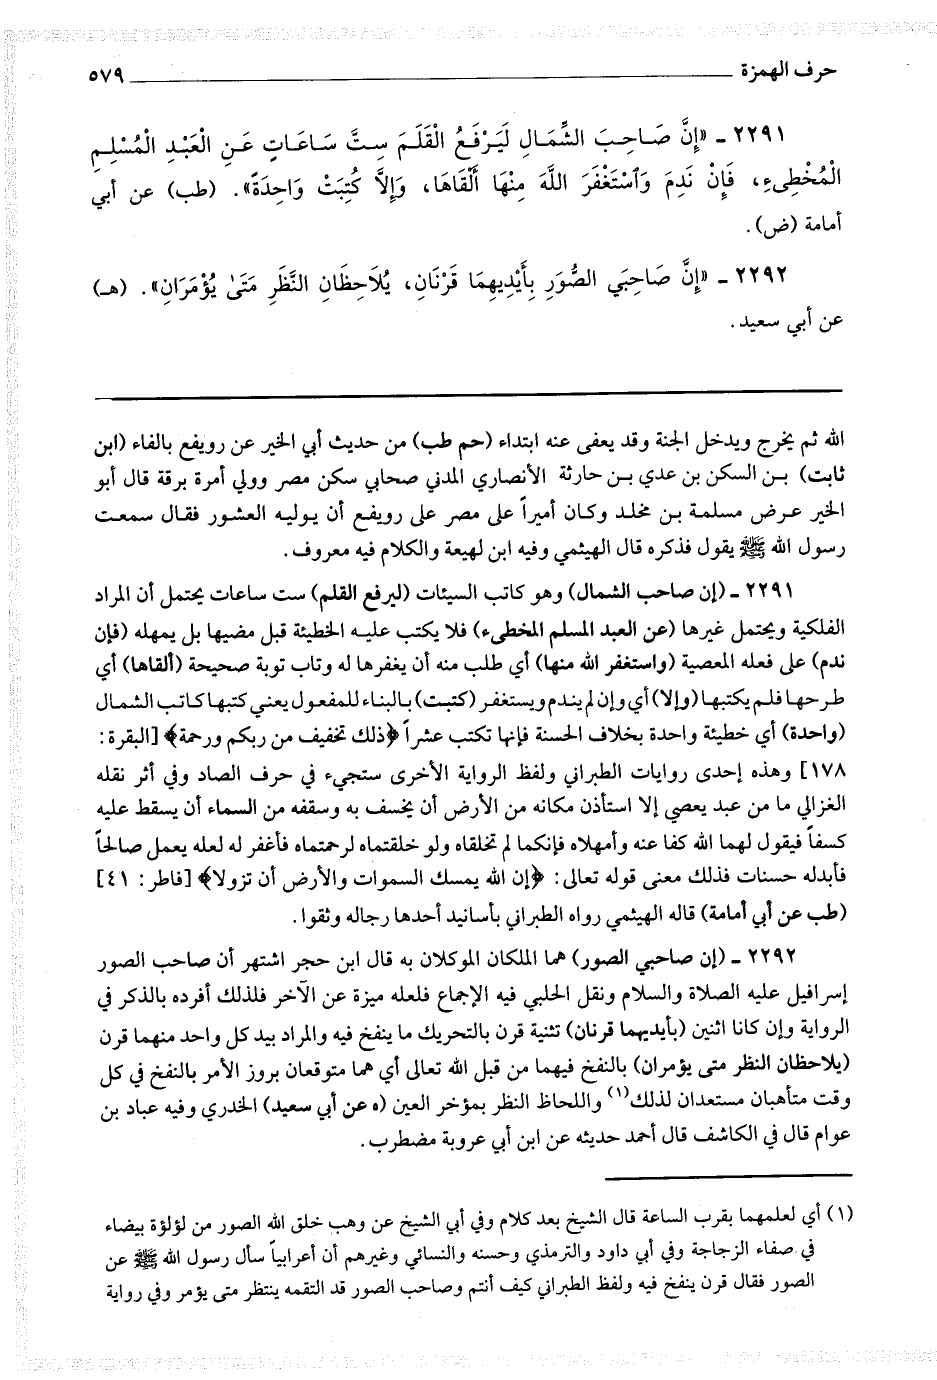 حرف الهمزة ٥٧٩
٢٢٩١ ـ «إِنَّ صَاحِبَ الشِّمَالِ لَيَرْفَعُ الْقَلَمَ سِتَّ سَاعَاتٍ عَنِ الْعَبْدِ الْمُسْلِمِ
الْمُخْطِىءِ، فَإِنْ نَدِمَ وَاسْتَغْفَرَ اللَّهَ مِنْهَا أَلْقَاهَا، وَإِلاَّ كُتِبَتْ وَاحِدَةً». (طب) عن أبي
أمامة (ض).
٢٢٩٢ ـ «إِنَّ صَاحِبَيِ الصُّوَرِ بِأَيْدِيهِمَا قَرْنَانِ، يُلاَحِظَانِ النَّظَرِ مَتَىٰ يُؤْمَرَانِ». (هـ)
عن أبي سعيد.
الله ثم يخرج ويدخل الجنة وقد يعفى عنه ابتداء (حم طب) من حديث أبي الخير عن رويفع بالفاء (ابن
ثابت) بن السكن بن عدي بن حارثة الأنصاري المدني صحابي سكن مصر وولي أمرة برقة قال أبو
الخير عرض مسلمة بن مخلد وكان أميراً على مصر على رويفع أن يوليه العشور فقال سمعت
رسول الله ﷺ يقول فذكره قال الهيثمي وفيه ابن لهيعة والكلام فيه معروف.
٢٢٩١ ـ (إن صاحب الشمال) وهو كاتب السيئات (ليرفع القلم) ست ساعات يحتمل أن المراد
الفلكية ويحتمل غيرها (عن العبد المسلم المخطىء) فلا يكتب عليه الخطيئة قبل مضيها بل يمهله (فإن
ندم) على فعله المعصية (واستغفر الله منها) أي طلب منه أن يغفرها له وتاب توبة صحيحة (ألقاها) أي
طرحها فلم يكتبها (وإلا) أي وإن لم يندم ويستغفر (كتبت) بالبناء للمفعول يعني كتبها كاتب الشمال
(واحدة) أي خطيئة واحدة بخلاف الحسنة فإنها تكتب عشراً ﴿ذلك تخفيف من ربكم ورحمة﴾ [البقرة:
١٧٨] وهذه إحدى روايات الطبراني ولفظ الرواية الأخرى ستجيء في حرف الصاد وفي أثر نقله
الغزالي ما من عبد يعصي إلا استأذن مكانه من الأرض أن يخسف به وسقفه من السماء أن يسقط عليه
كسفاً فيقول لهما الله كفا عنه وأمهلاه فإنكما لم تخلقاه ولو خلقتماه لرحمتماه فأغفر له لعله يعمل صالحاً
فأبدله حسنات فذلك معنى قوله تعالى: ﴿إن الله يمسك السموات والأرض أن تزولا﴾ [فاطر: ٤١]
(طب عن أبي أمامة) قاله الهيثمي رواه الطبراني بأسانيد أحدها رجاله وثقوا.
٢٢٩٢ ـ (إن صاحبي الصور) هما الملكان الموكلان به قال ابن حجر اشتهر أن صاحب الصور
إسرافيل عليه الصلاة والسلام ونقل الحلبي فيه الإجماع فلعله ميزة عن الآخر فلذلك أفرده بالذكر في
الرواية وإن كانا اثنين (بأيديهما قرنان) تثنية قرن بالتحريك ما ينفخ فيه والمراد بيد كل واحد منهما قرن
(يلاحظان النظر متى يؤمران) بالنفخ فيهما من قبل الله تعالى أي هما متوقعان بروز الأمر بالنفخ في كل
وقت متأهبان مستعدان لذلك(١) واللحاظ النظر بمؤخر العين (ه عن أبي سعيد) الخدري وفيه عباد بن
عوام قال في الكاشف قال أحمد حديثه عن ابن أبي عروبة مضطرب.
(١) أي لعلمهما بقرب الساعة قال الشيخ بعد كلام وفي أبي الشيخ عن وهب خلق الله الصور من لؤلؤة بيضاء
في صفاء الزجاجة وفي أبي داود والترمذي وحسنه والنسائي وغيرهم أن أعرابياً سأل رسول الله ﷺ عن
الصور فقال قرن ينفخ فيه ولفظ الطبراني كيف أنتم وصاحب الصور قد التقمه ينتظر متى يؤمر وفي رواية